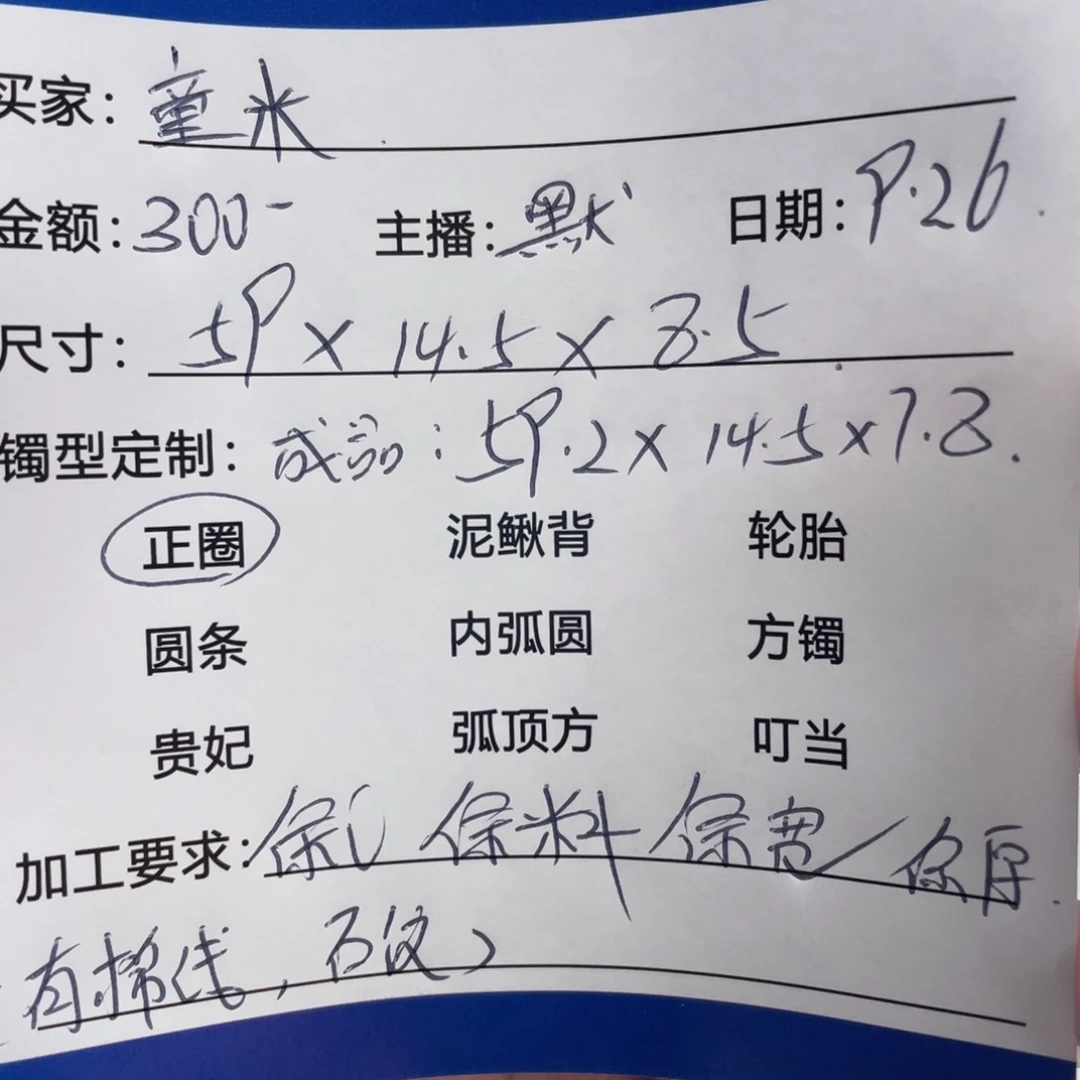 买家: 童冰
金额: 300- 主播: 默 日期: 9.26
尺寸: 59 x 14.5 x 8.5
镯型定制: 成品: 59.2 x 14.5 x 7.8.
正圈 泥鳅背 轮胎
圆条 内弧圆 方镯
贵妃 弧顶方 叮当
加工要求: 保心 保料 保宽/保厚
有棉线, 石纹)